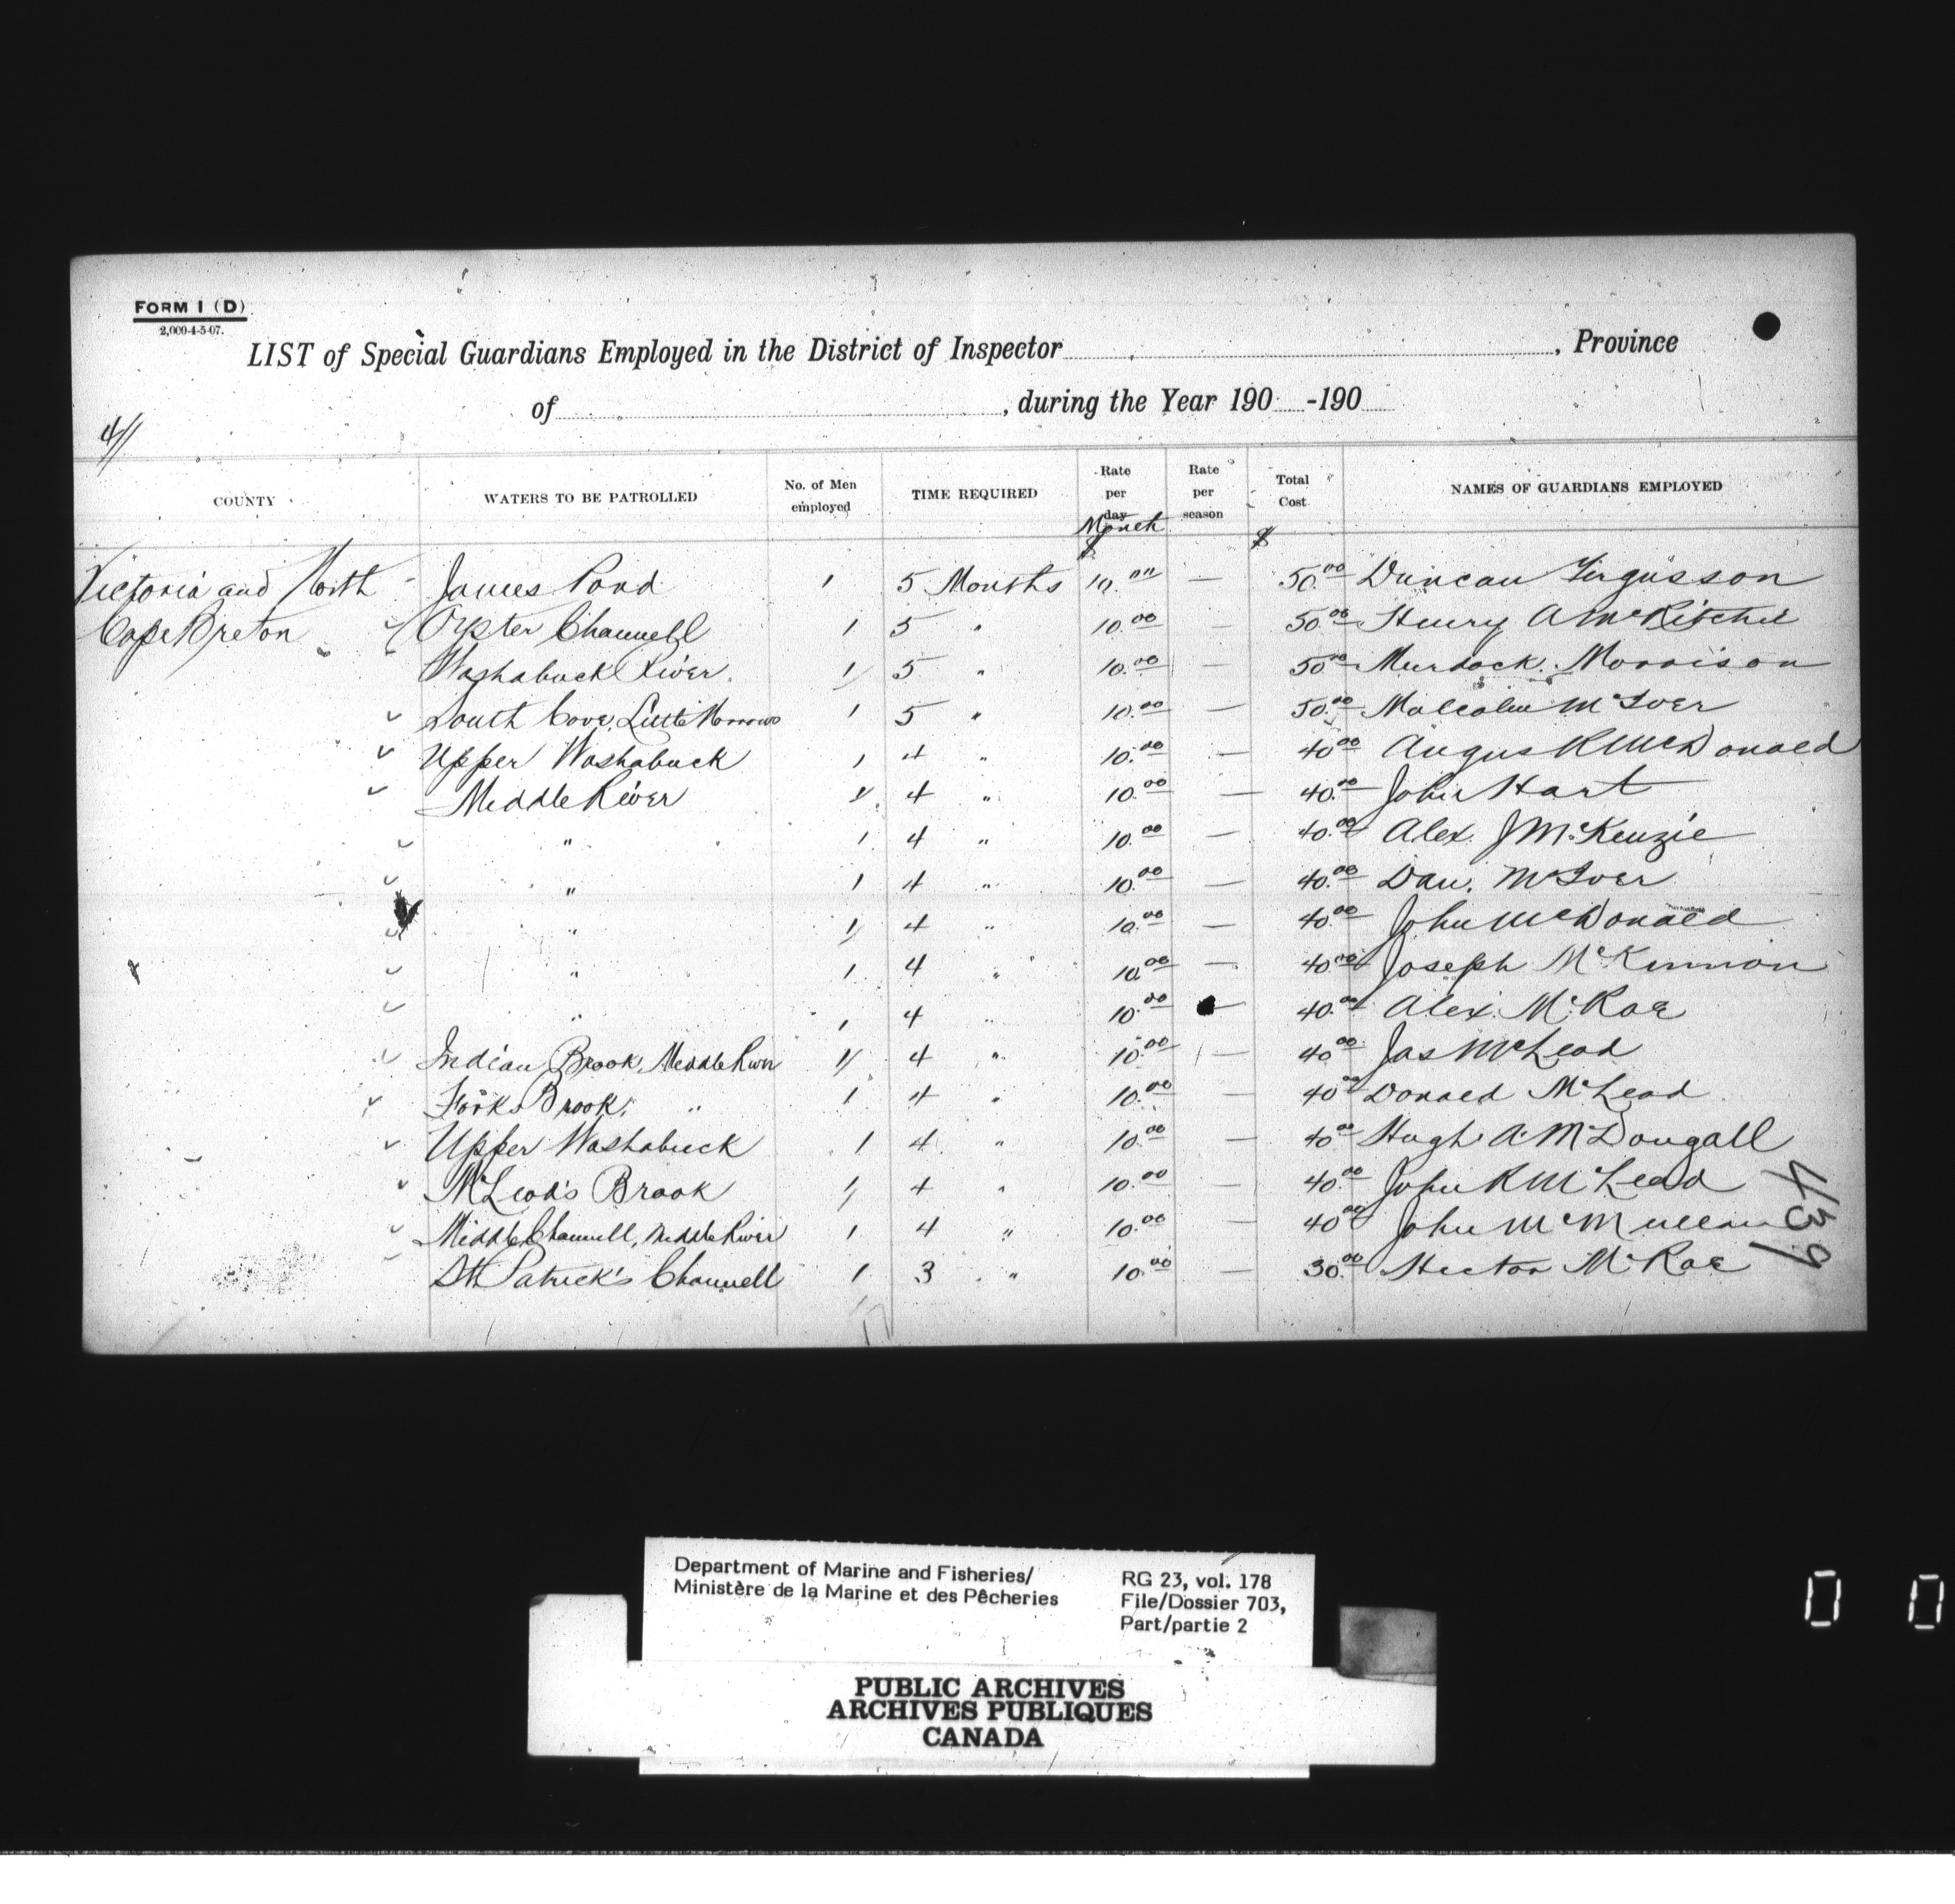 FORM 1 (D)
2,000-4-5-07.
LIST of Special Guardians Employed in the District of Inspector , Province
of , during the Year 190 -190
4//
COUNTY WATERS TO BE PATROLLED No. of Men employed TIME REQUIRED Rate per day Month $ Rate per season Total Cost $ NAMES OF GUARDIANS EMPLOYED
Victoria and North James Pond 1 5 Months 10.00 — 50.00 Duncan Fergusson
Cape Breton Oyster Channell 1 5 " 10.00 — 50.00 Henry A McRitchie
Washabuck River. 1 5 " 10.00 — 50.00 Murdock. Morrison
South Cove, Little Narrows 1 5 " 10.00 — 50.00 Malcolm McIver
Upper Washabuck 1 4 " 10.00 — 40.00 Angus R McDonald
Middle River 1 4 " 10.00 — 40.00 John Hart
" 1 4 " 10.00 — 40.00 Alex. J McKenzie
" 1 4 " 10.00 — 40.00 Dan. McIver
" 1 4 " 10.00 — 40.00 John McDonald
" 1 4 " 10.00 — 40.00 Joseph McKinnon
" 1 4 " 10.00 — 40.00 Alex. McRae
Indian Brook, Middle River 1 4 " 10.00 — 40.00 Jas McLeod
Forks Brook, " 1 4 " 10.00 40.00 Donald McLeod
Upper Washabuck 1 4 " 10.00 — 40.00 Hugh A. McDougall
McLeod's Brook 1 4 " 10.00 — 40.00 John R McLeod
Middle Channell, Middle River 1 4 " 10.00 — 40.00 John McMullan
St Patrick's Channell 1 3 " 10.00 — 30.00 Hector McRae
17
439
Department of Marine and Fisheries/
Ministère de la Marine et des Pêcheries
RG 23, vol. 178
File/Dossier 703,
Part/partie 2
PUBLIC ARCHIVES
ARCHIVES PUBLIQUES
CANADA
0 0